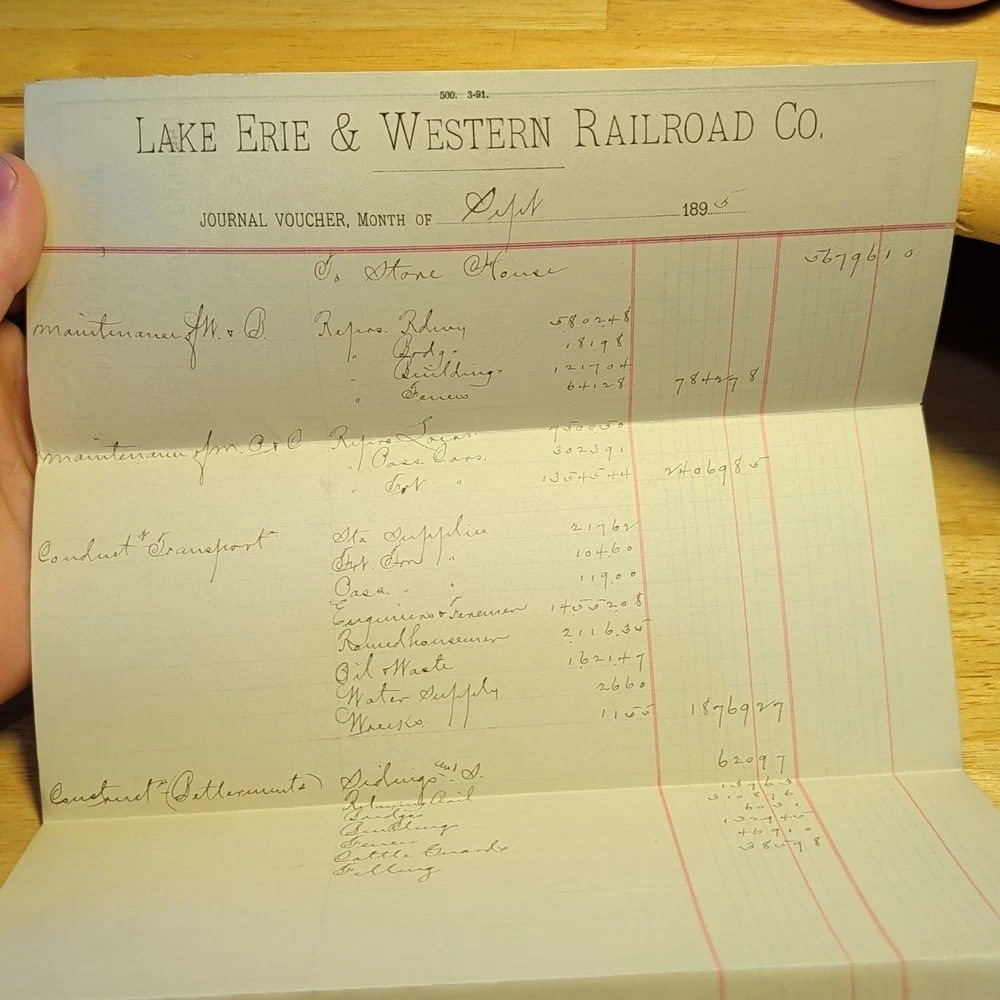 500. 3-91.
LAKE ERIE & WESTERN RAILROAD CO.
JOURNAL VOUCHER, MONTH OF Sept 1895
To Store House 5679610
Maintenance of W. & B. Reprs. Rdway 580248
" Bridg. 18198
" Buildings 121704
" Fences 64128 784278
Maintenance of M. P. & C Reprs. Locos. 750050
" Pass Cars. 302391
" Frt " 1354544 2406985
Conductg Transportn Sta Supplies 21762
Frt. Trn " 10460
Pass. " 11900
Engineers & Firemen 1455208
Roundhousemen 211635
Oil & Waste 162147
Water Supply 2660
Wrecks. 1155 1876927
Constructn (Betterments) Sidings S. 62097
Relaying Rail 13763
Bridges 310876
Building 6031
Fences 132945
Cattle Guards 46910
Filling 38598